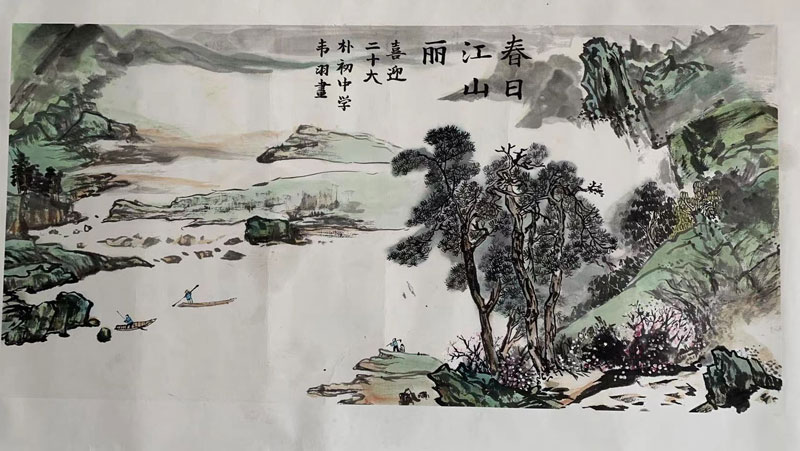 春日
江山
丽
喜迎
二十大
朴初中学
韦羽畫